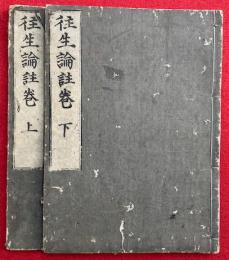 往生論註卷 下
往生論註卷 上